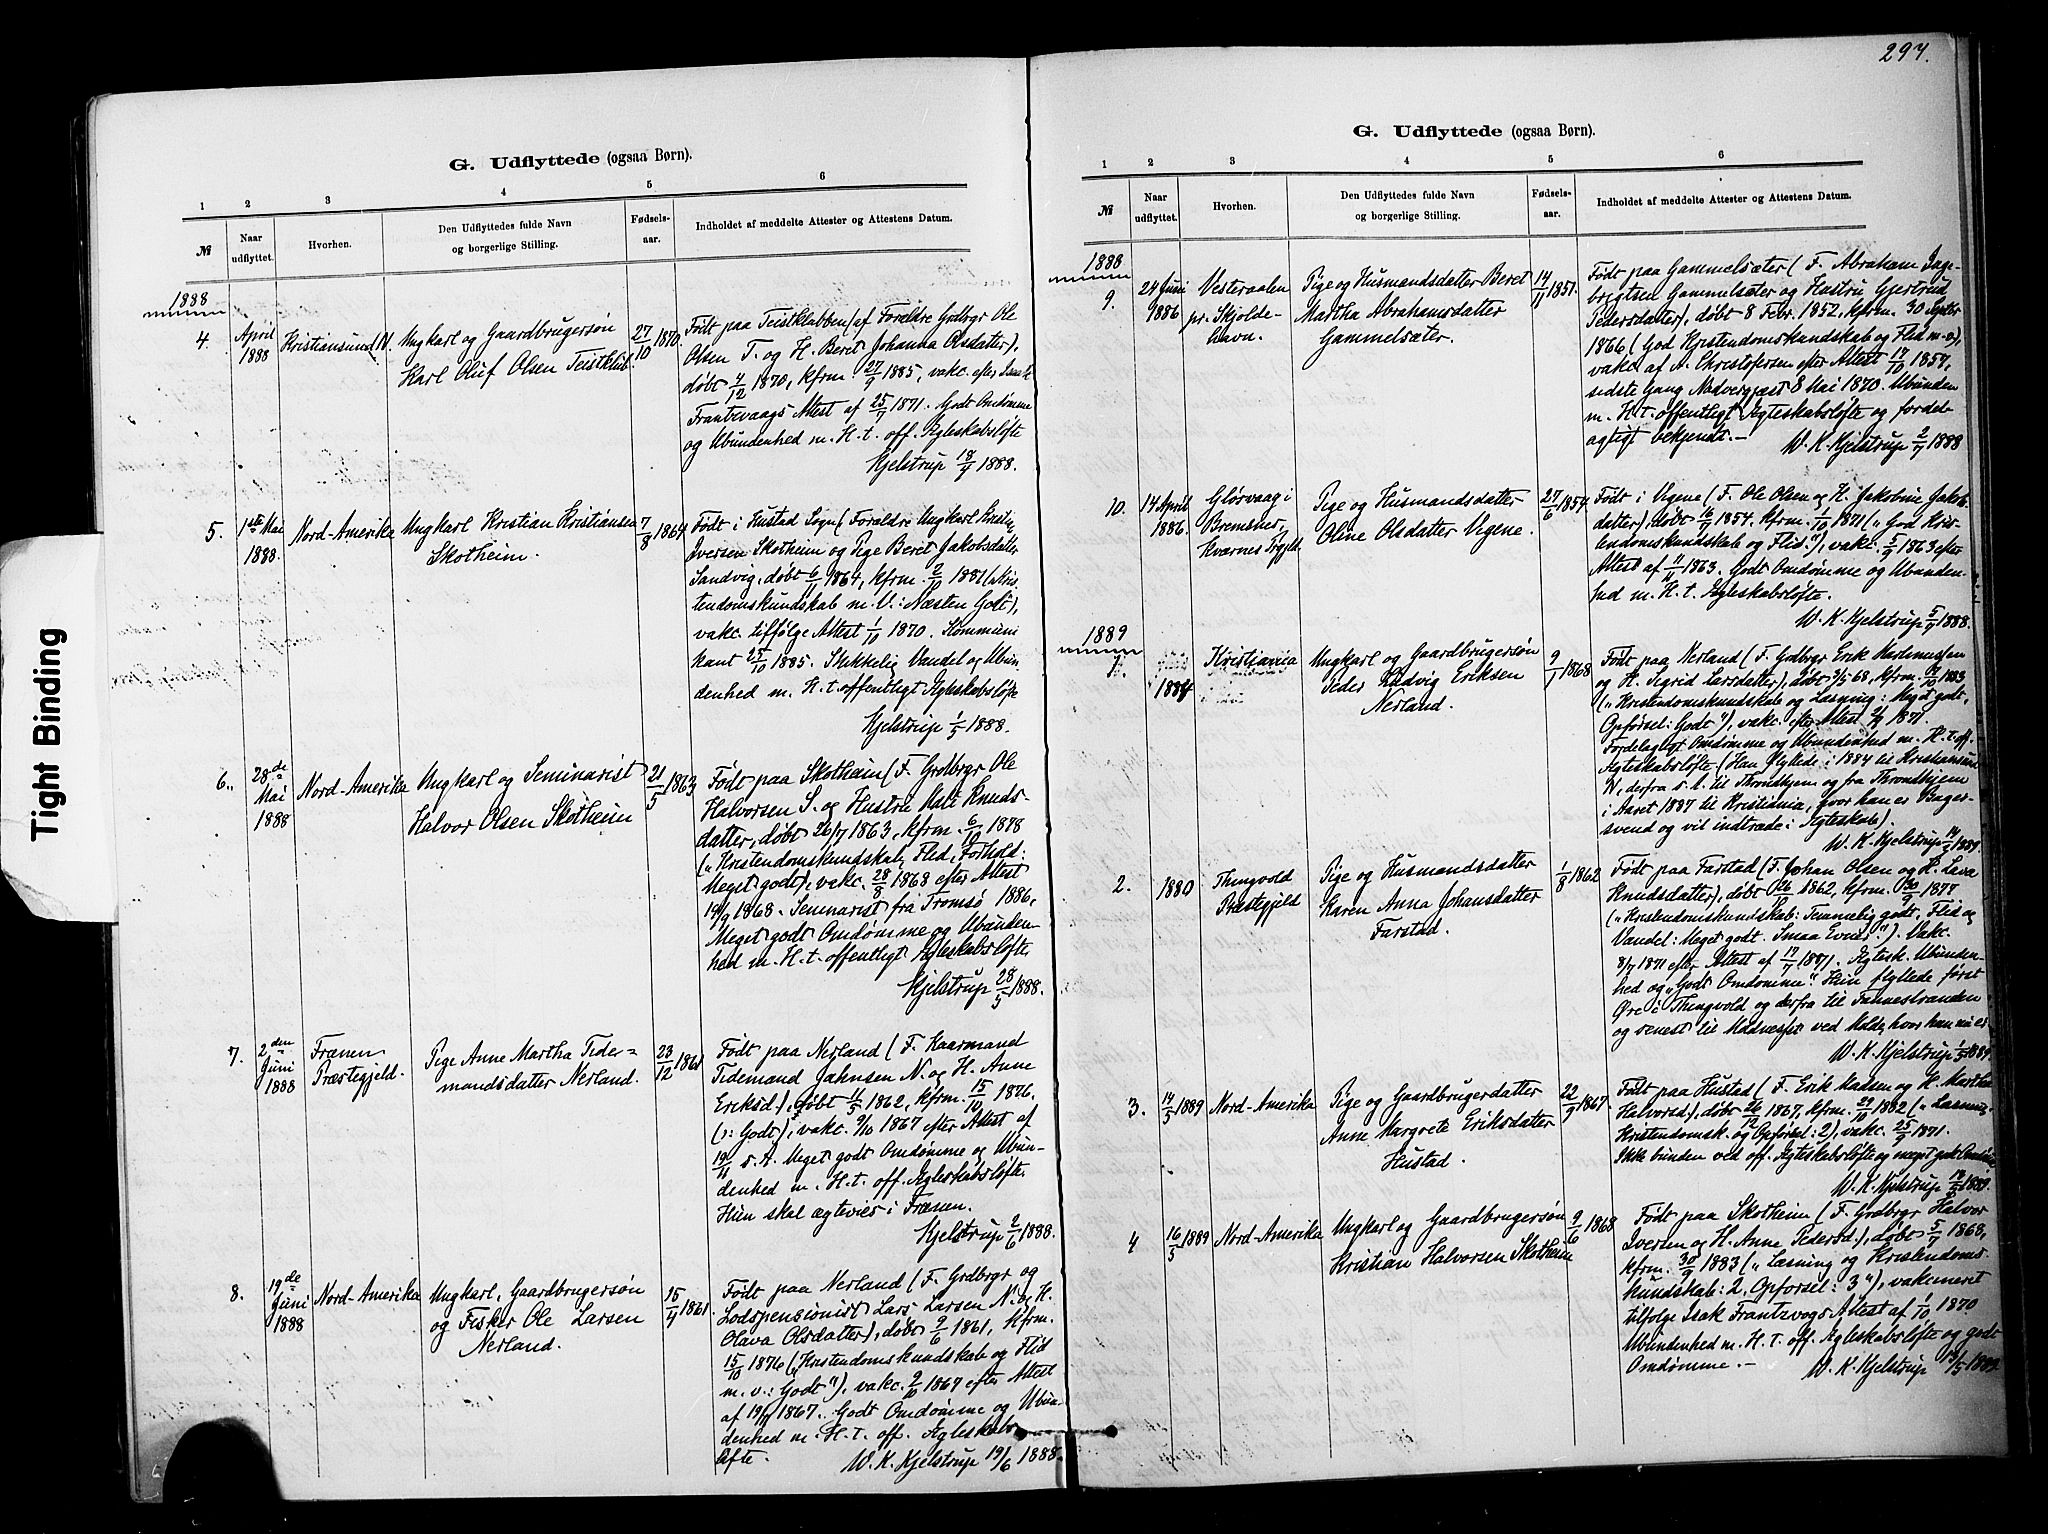 Tight Binding
G. Udflyttede (ogsaa Børn).
1 2 3 4 5 6
№ Naar udflyttet. Hvorhen. Den Udflyttedes fulde Navn og borgerlige Stilling. Fødselsaar. Indholdet af meddelte Attester og Attestens Datum.
1888
4. April 1888 Kristiansund N. Ungkarl og Gaardbrugersøn Karl Oluf Olsen Teistklub. 27/10 1870.
Født paa Teistklubben (af Foraldre Grdbrgr Ole
Olsen T. og H. Beret Johanna Olsdatter),
døbt 4/12 1870, kfrm. 27/9 1885, vakc. efter
Frantzvaags Attest af 25/7 1871. Godt Omdømme
og Ubundenhed m. H. t. off. Ægteskabsløfte
Kjelstrup 18/4 1888.
5. 1ste Mai 1888. Nord-Amerika Ungkarl Kristian Kristiansen Skotheim. 7/8 1864
Født i Hustad Sogn (Foraldre Ungkarl Kristen
Iversen Skotheim og Pige Beret Jakobsdatter
Sandvig, døbt 6/11 1864, kfrm. 2/10 1881 (Kris-
tendomskundskab m. V.: Næsten Godt),
vakc. tilfølge Attest 1/10 1870. Kommuni
kant 25/10 1885. Skikkelig Vandel og Ubun
denhed m. H. t. offentligt Ægteskabsløfte
Kjelstrup 1/5 1888.
6. 28de Mai 1888 Nord-Amerika Ungkarl og Seminarist Halvor Olsen Skotheim 21/5 1863
Født paa Skotheim (F. Grdbrgr Ole
Halvorsen S. og Hustru Mali Knuds-
datter, døbt 26/7 1863, kfrm. 6/10 1878
(„Kristendomskundskab, Flid, Forhold:
Meget godt), vakc. 28/8 1868 efter Attest
19/9 1868. Seminarist fra Tromsø 1886,
Meget godt Omdømme og Ubunden-
hed m. H. t. offentligt Ægteskabsløfte
Kjelstrup 28/5 1888.
7. 2den Juni 1888 Frænen Præstegjeld. Pige Anne Martha Tide-
mandsdatter Nerland. 23/12 1861
Født paa Nerland (F. Kaarmand
Tidemand Jahnsen N. og H. Anne
Eriksd.), døbt 11/5 1862, kfrm. 15/10 1876,
(: Godt), vakc. 9/10 1867 efter Attest af
19/11 s. A. Meget godt Omdømme og Ubun-
denhed m. H. t. off. Ægteskabsløfte.
Hun skal ægtevies i Frænen.
Kjelstrup 2/6 1888.
8. 19de Juni 1888 Nord-Amerika Ungkarl, Gaardbrugersøn og Fisker Ole Larsen Nerland. 15/4 1861
Født paa Nerland (F. Grdbrgr og
Lodspensionist Lars Larsen N. og H.
Olava Olsdatter), døbt 9/6 1861, kfrm.
15/10 1876 („Kristendomskundskab og Flid
m. v.: Godt"), vakc. 9/10 1867 efter Attest
af 19/11 1867. Godt Omdømme og Ubun-
denhed m. H. t. off. Ægteskabs
løfte. W. K. Kjelstrup 19/6 1888.
297.
G. Udflyttede (ogsaa Børn).
1 2 3 4 5 6
№ Naar udflyttet. Hvorhen. Den Udflyttedes fulde Navn og borgerlige Stilling. Fødselsaar. Indholdet af meddelte Attester og Attestens Datum.
1888
9. 24 Juni 1886 Vesteraalen pr. Skjoldehavn. Pige og Husmandsdatter Beret Martha Abrahamsdatter Gammelsæter. 14/11 1851.
Født paa Gammelsæter (F. Abraham Inge-
brigtsen Gammelsæter og Hustru Gjertrud
Pedersdatter), døbt 8 Febr. 1852, kfrm. 30 Septbr
1866 (God Kristendomskundskab og Flid m-e),
vakc. af A. Christofersen efter Attest 17/10 1857,
sidste Gang Nadvergjæst 8 Mai 1870. Ubunden
m. H. t. offentligt Ægteskabsløfte og fordel-
agtigt bekjendt.— W. K. Kjelstrup 2/7 1888
10. 14 April 1886. Glørvaag i Bremsnes, Kværnes Prgjld. Pige og Husmandsdatter Oline Olsdatter Vegene. 27/6 1854
Født i Vegene (F. Ole Olsen og H. Jakobine Jakob
datter), døbt 16/7 1854, kfrm. 1/10 1871 („God Kris-
tendomskundskab og Flid."), vakc. 5/9 1863 efter
Attest af 11/11 1863. Godt Omdømme og Ubunden-
hed m. H. t. Ægteskabsløfte.
W. K. Kjelstrup 5/7 1888.
1889
1. 1884 Kristiania Ungkarl og Gaardbrugersøn Peder Ludvig Eriksen Nerland. 9/1 1868
Født paa Nerland (F. Grdbrgr Erik
og H. Sigrid Larsdatter), døbt 3/5 68, kfrm. 1883
(„Kristendomskundskab og Læsning: Meget godt,
Opførsel: Godt"), vakc. efter Attest 1871.
Fordelagtigt Omdømme og Ubundenhed m. H. t. off.
Ægteskabsløfte (Han flyttede i 1884 til Kristiansund
N, derfra s. A. til Throndhjem og fra Throndhjem
i Aaret 1887 til Kristiania, hvor han er Bager-
svend og vil indtræde i Ægteskab).
W. K. Kjelstrup 1889.
2. 1880 Thingvold Præstegjeld Pige og Husmandsdatter Karen Anna Johansdatter Farstad. 1/8 1862
Født paa Farstad (F. Johan Olsen og H. Lava
Knudsdatter), døbt 26/ 1862, kfrm. 30/9 1877
(„Kristendomskundskab: Temmelig godt, Flid og
Vandel: Meget godt. Smaa Evner."). Vakc.
8/7 1871 efter Attest af 17/7 1871. Ægtesk. Ubunden-
hed og „Godt Omdømme". Hun flyttede først
Øre i Thingvold og derfra til Fannestranden
og senest til ved Molde, hvor han nu er.
W. K. Kjelstrup 1889.
3. 14/5 1889 Nord-Amerika Pige og Gaardbrugerdatter Anne Margrete Eriksdatter Hustad. 22/9 1867
Født paa Hustad (F. Erik Madsen og H. Martha
Halvorsd.), døbt 26/12 1867, kfrm. 29/10 1882 („Læsning,
Kristendomsk. og Opførsel: 2), vakc. 25/9 1871.
Ikke bunden ved off. Ægteskabsløfte og meget godt Omdømme
W. K. Kjelstrup 1889.
4 16/5 1889 Nord-Amerika Ungkarl og Gaardbrugersøn Kristian Halvorsen Skotheim 9/6 1868
Født paa Skotheim (F. Grdbrgr Halvor
Iversen og H. Anne Pedersd.), døbt 5/7 1868,
kfrm. 30/9 1883 („Læsning og Kristendoms-
kundskab: 2. Opførsel: 3"), vakcineret
tilfølge Isak Frantzvogs Attest af 1/10 1870
Ubundenhed m. H. t. off. Ægteskabsløfte og godt
Omdømme.— W. K. Kjelstrup 1889